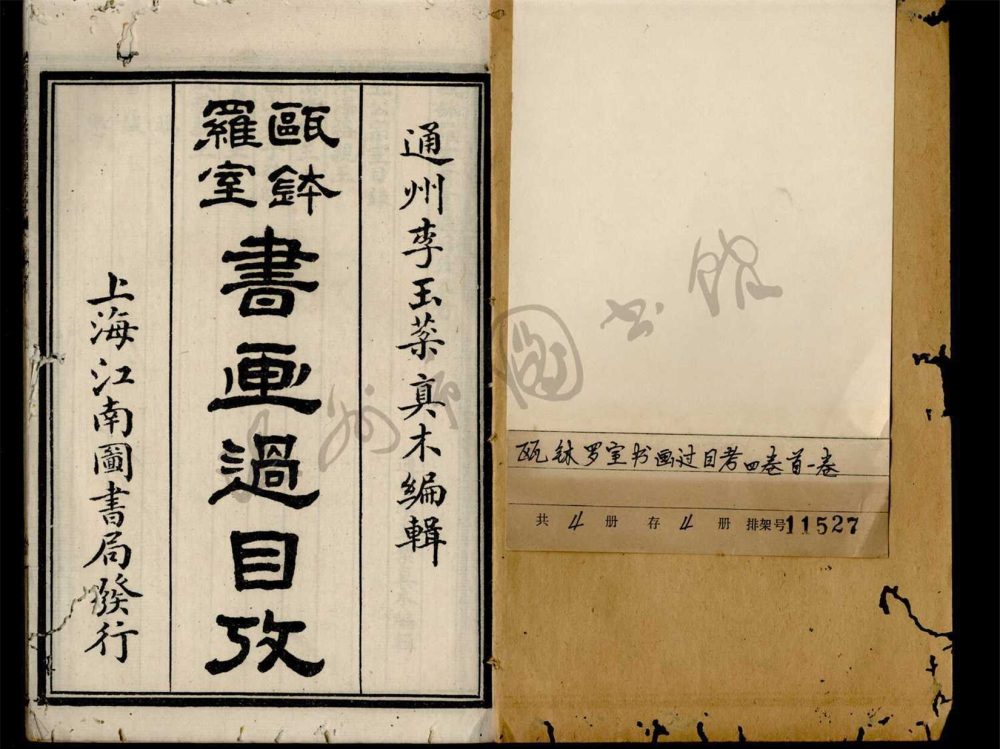 瓯钵罗室书画过目考四卷首一卷
共 4 册 存 4 册 排架号11527
通州李玉棻真木編輯
甌鉢
羅室
書画過目攷
上海江南圖書局發行